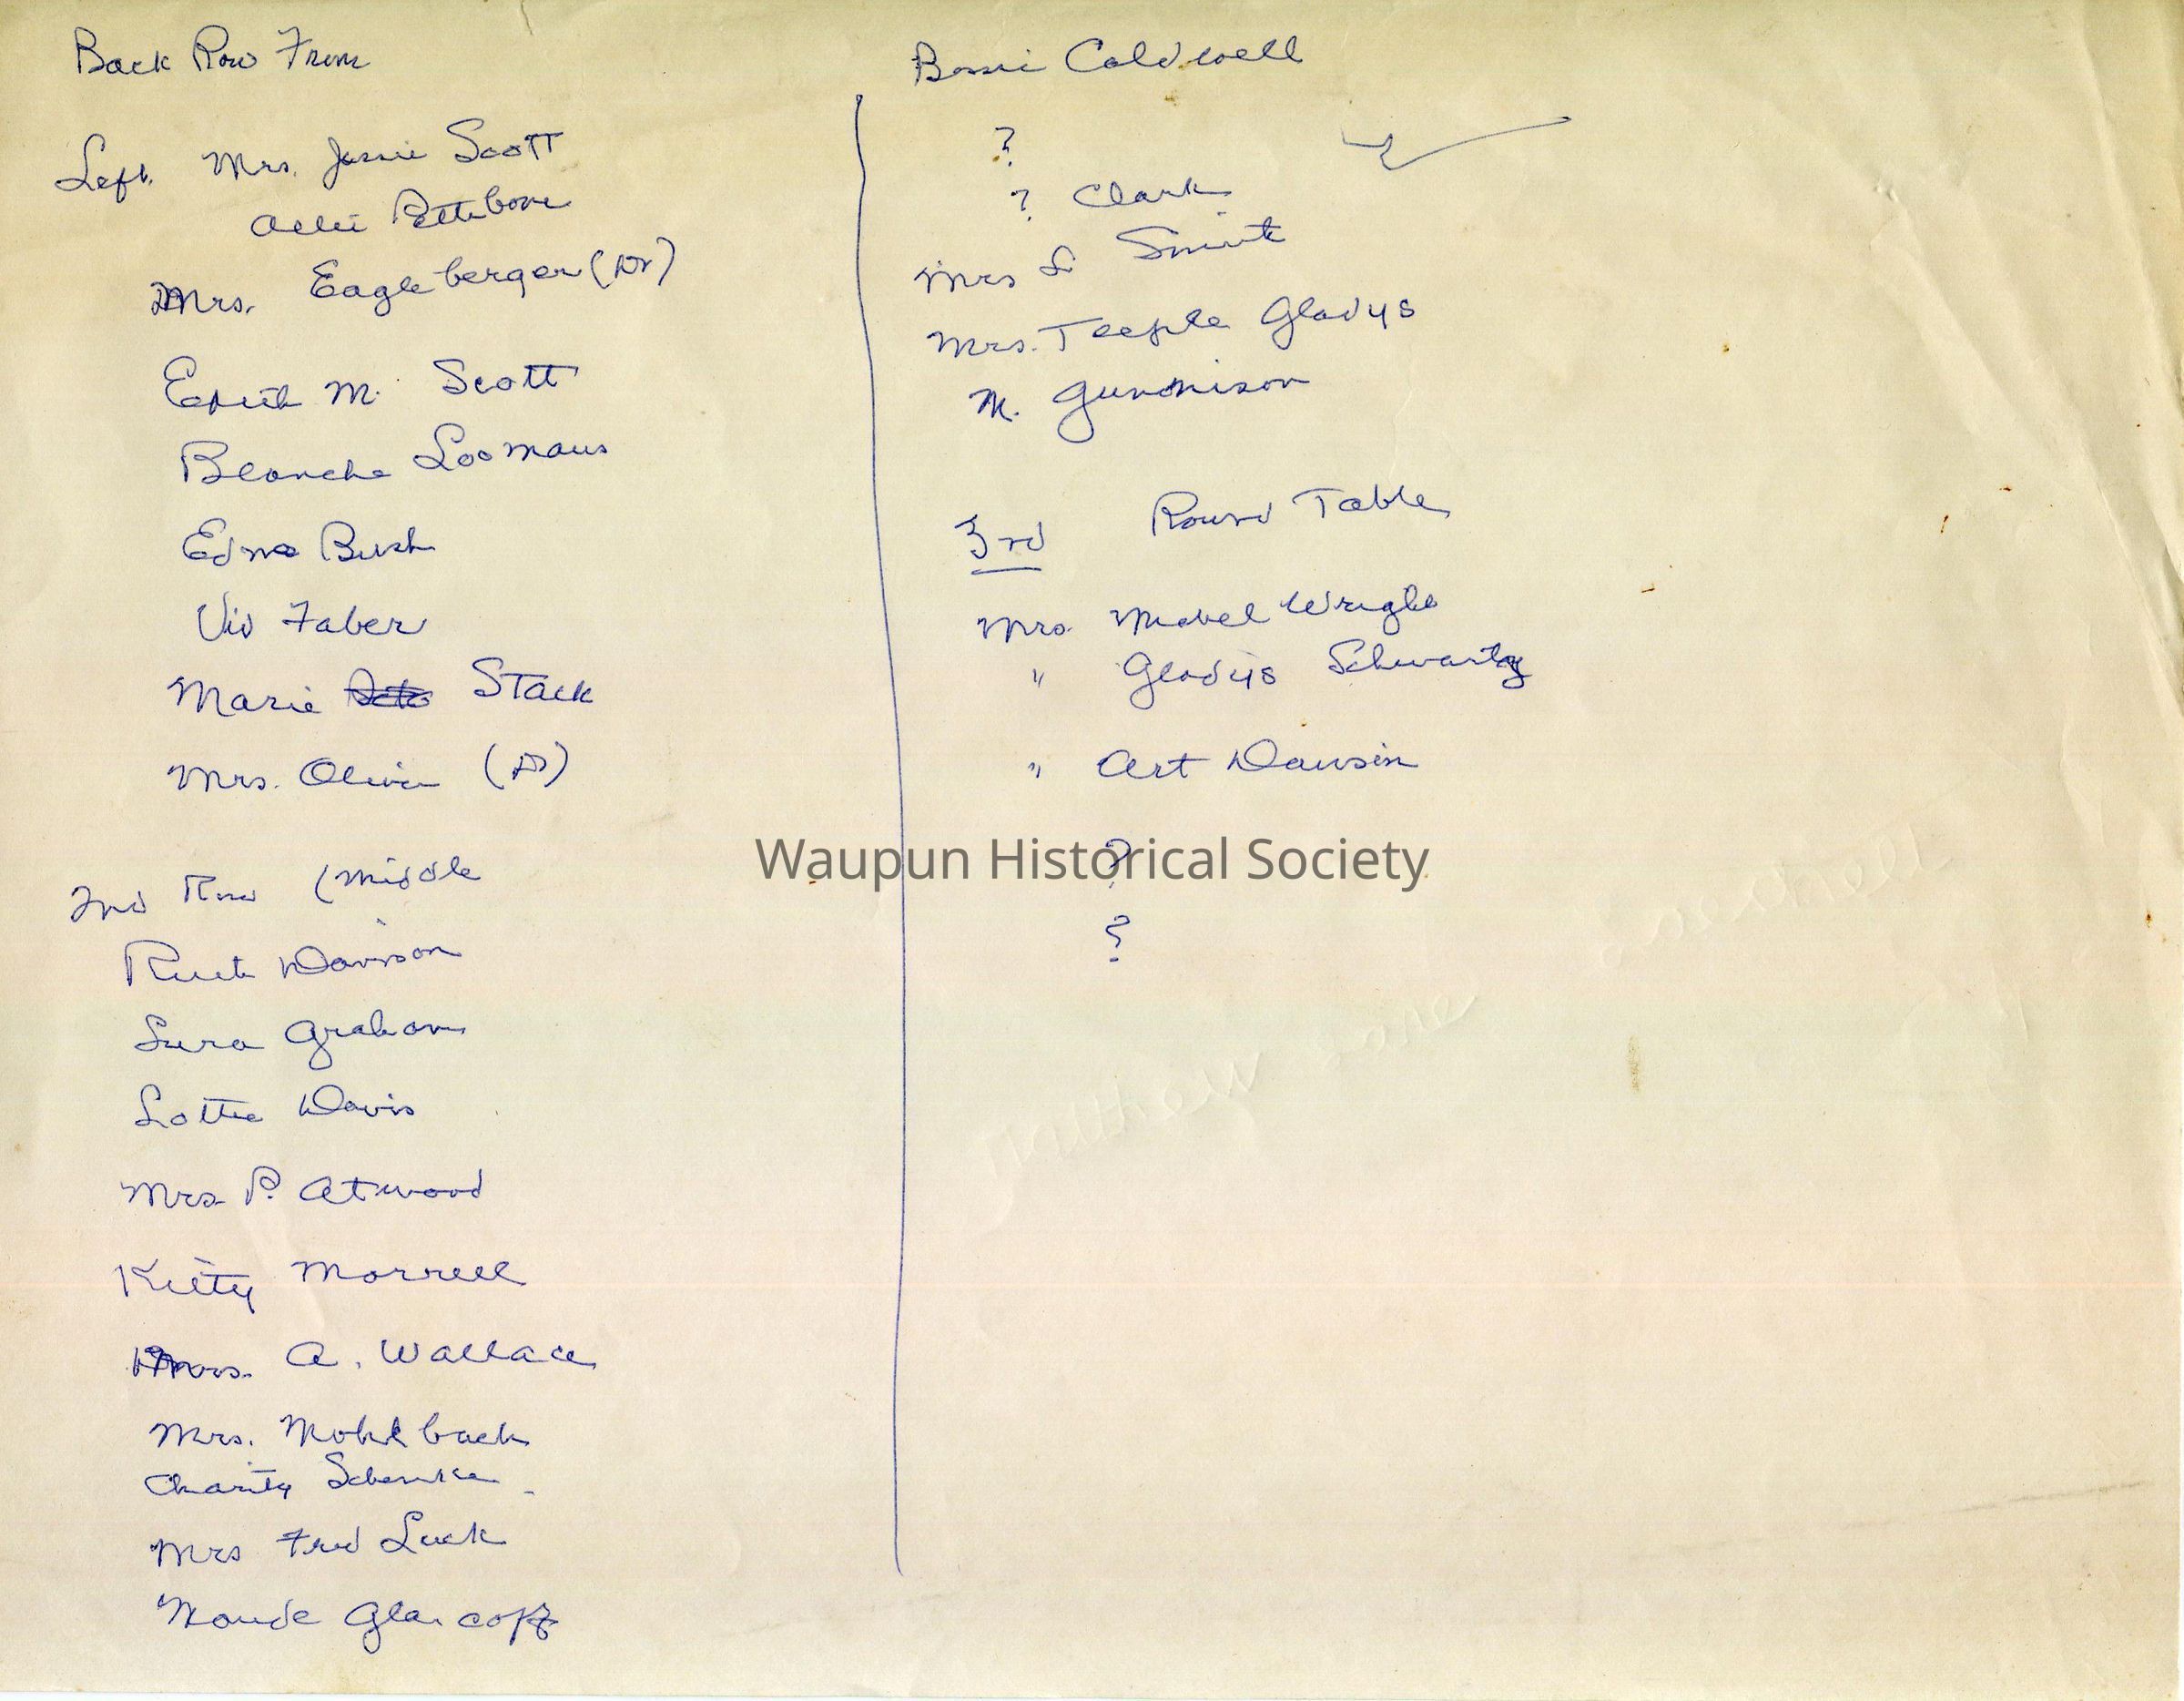 Back Row From
Left Mrs. Jessie Scott
Allie Pettibone
Mrs. Eagleberger (Dr)
Edith M. Scott
Blanche Loomans
Edna Bush
Viv Faber
Marie Stack
Mrs. Oliver (Dr)
2nd Row (Middle
Ruth Davison
Lura Graham
Lottie Davis
Mrs P. Atwood
Kitty Morrell
Mrs. A. Wallace
Mrs. Mohlback
Charity
Mrs Fred Luck
Maude
Bessie Caldwell
?
? Clark
Mrs S Smith
Mrs. Teeple Gladys
M. Gunnison
3rd Round Table
Mrs. Mabel Wright
" Gladys Schwartz
" Art Dawsin
?
?
Waupun Historical Society